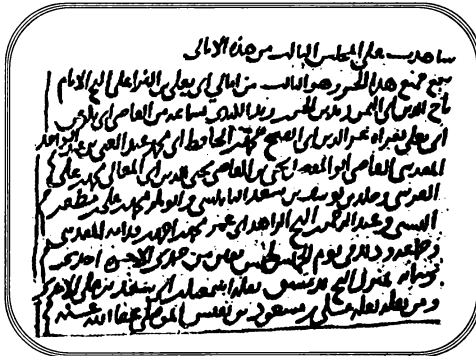 شاهدت على المجلس الثالث من هذه الامالي
سمع جميع هذا الجزء وهو الثالث من امالي ابي يعلى بن الفرا على الشيخ الامام
تاج الدين ابي اليمن زيد بن الحسن بن زيد الكندي بسماعه من القاضي ابي بكر عن
ابي يعلى بقراءة عز الدين ابي الفتح محمد بن الحافظ ابي محمد عبد الغني بن عبد الواحد
المقدسي القاضي ابو المفضل يحيى بن القاضي محيي الدين ابي المعالي محمد بن علي
القرشي وخالد بن يوسف بن سعد النابلسي محمد بن علي بن مظفر
وعبد الرحمن بن الشيخ الزاهد ابي عمر محمد بن احمد بن قدامة المقدسي
وذلك في يوم الخميس من جمادى الاخرة احدى
وستمائة بمنزل الشيخ بدمشق نقله اسمعيل بن بن علي
ومن نقله نقله علي بن مسعود بن نفيس الموصلي عفا الله عنه